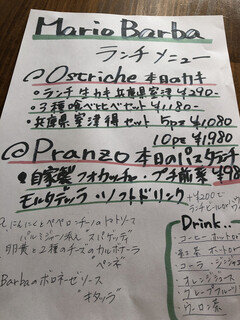 Mario Barba
ランチメニュー
@Ostriche 本日のカキ
・ランチ生カキ 兵庫県室津 ¥290-
・3種喰べ比べセット ¥1,180-
・兵庫県室津得セット 5pz ¥1,080
10pz ¥1,980
@Pranzo 本日のパスタランチ
自家製フォカッチャ・プチ前菜 ¥98
モルタデッラ ソフトドリンク
+¥200で
にんにくとペペロンチーノのトマトソース
パルミジャーノ "スパゲッティ"
卵黄と2種のチーズのカルボナーラ
"ペンネ"
Barbaのボロネーゼソース
"キタッラ"
Drink..
・コーヒー
紅茶
・コーラ ・ジンジャ
・オレンジジュース
・グレープフルーツ
・ウーロン茶